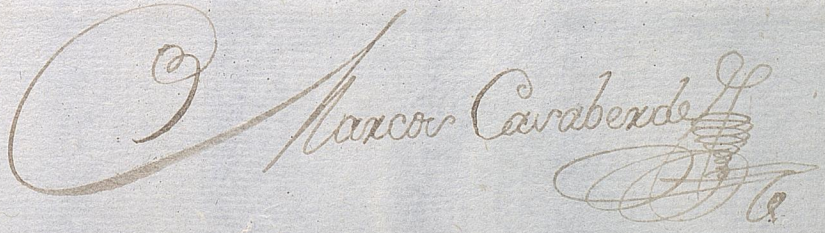 Marcos Casaberde